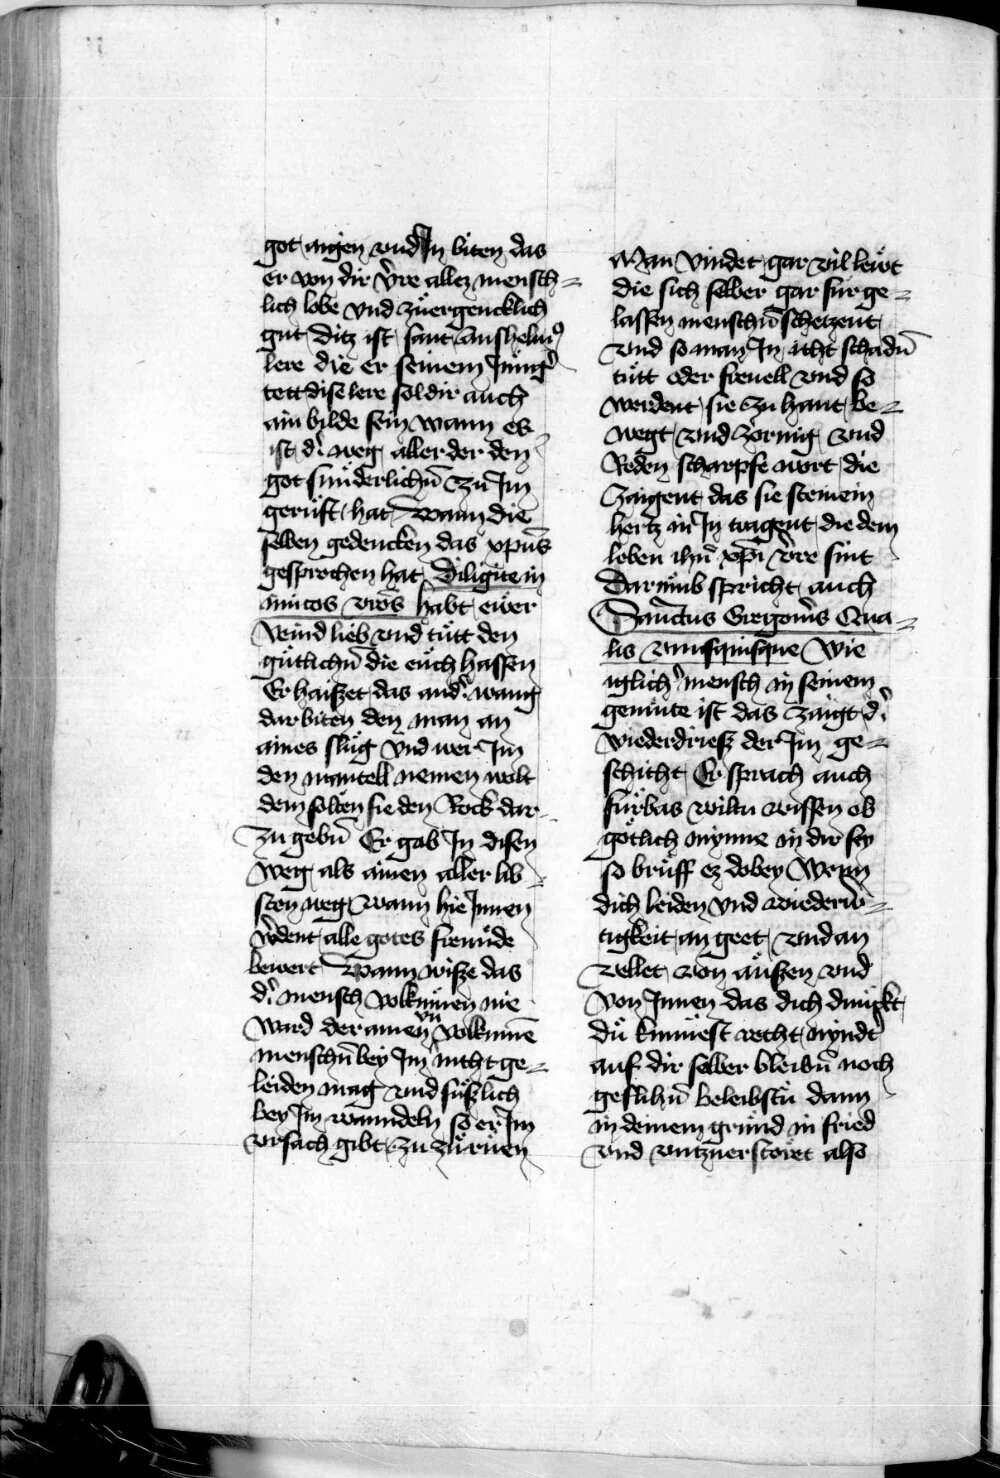 got aigen vnd In biten das
er von dir v̾re allez mensch=
lich lobe vnd zuͤergencklich
gut Ditz ist sant Anshelmꝰ
lere die er seinem Iung̾
tett dise lere sol dir auch
ain bilde sein wann es
ist d̾ weg aller der den
got sunderlichn̄ zu Im
geruͤft hat Wann die
selben gedencken das xpūs
gesprochen hat Diligite in
imicos vr̄os habt euͤer
veind lieb vnd tuͤtt den
guͤtlichn̄ die euͤch hassen
Er haiszet das and̾ wang
dar biten den man an
aines sluͤg vnd wer Im
den mantell nemen wolt
dem solten sie den Rock dar=
zu gebn̄ Er gab In disen
weg als ainen aller lib=
sten weg wann hie Innen
w̾dent alle gotes freuͤnde
bewert Wann wisze das
d̾ mensch volkumen nie
ward der ainen vn̄ volkumē
menschn̄ bey Im nicht ge=
leiden mag vnd suͤszlich
bey Im wanndeln so er Im
vrsach gibt zu zuͤrnen
Man vindet gar vil leuͤt
die sich selber gar fur ge=
lassen menschn̄ schetzent
vnd so man In icht schadn̄
tuͤtt oder freuell vnd so
werdent sie zu hant be=
wegt vnd zornig vnd
Reden scharpfe wort die
zaigent das sie steinein
hertz in In tragent die dem
leben ihū xp̄i v̾re sint
Darumb spricht auch
Sanctus Gregoriꝰ Qua=
lis vnusquisque Wie
iglich̾ mensch in seinem
gemute ist das zaigt d̾
wiederdriesz der Im ge=
schicht Er sprach auch
furbas wiltu wissen ob
gotlich mynne in dir sey
so bruͤff ez dobey Wenn
dich leiden vnd wiederw̾=
tigkeit an geet vnd an
vellet von auͤszen vnd
von Innen das dich dunckt
duͤ kunnest recht nyndt̾
auf dir selber bleibn̄ noch
geflihn̄ beleibstu dann
in deinem grund in fried
vnd vntzuerstoret also